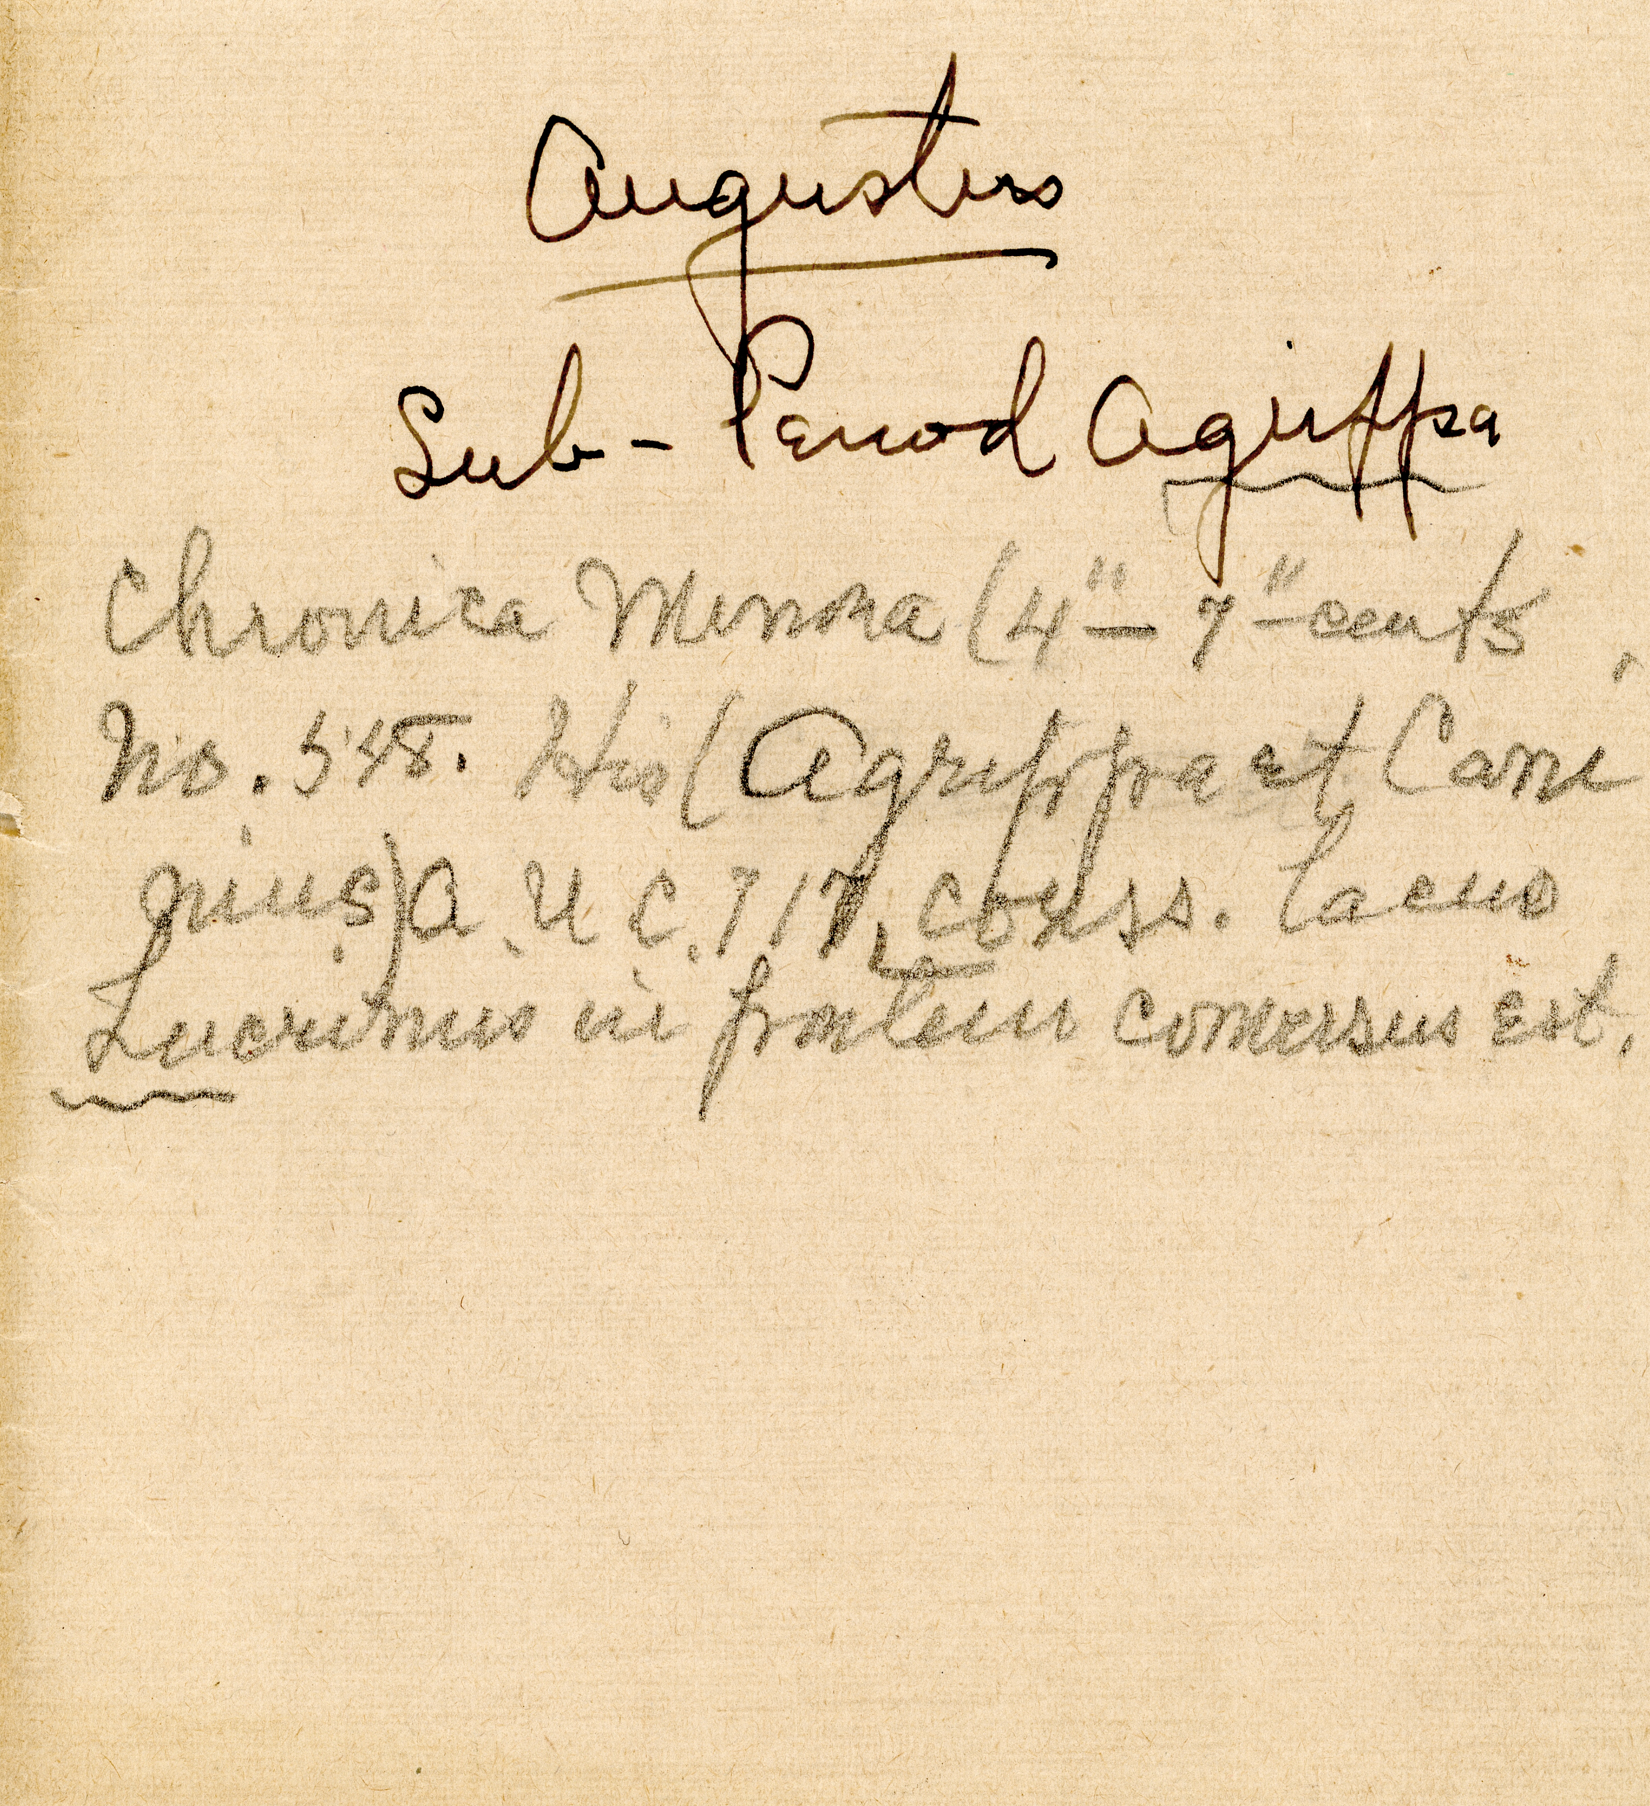 Augustus
Sub-Period Agrippa
Chronica Minora (4" - 7" cents,
No. 548. His (Agrippa et Cani
nius) A.U.C. 717, conss. lacus
Lucrinus in fontem conversus est.